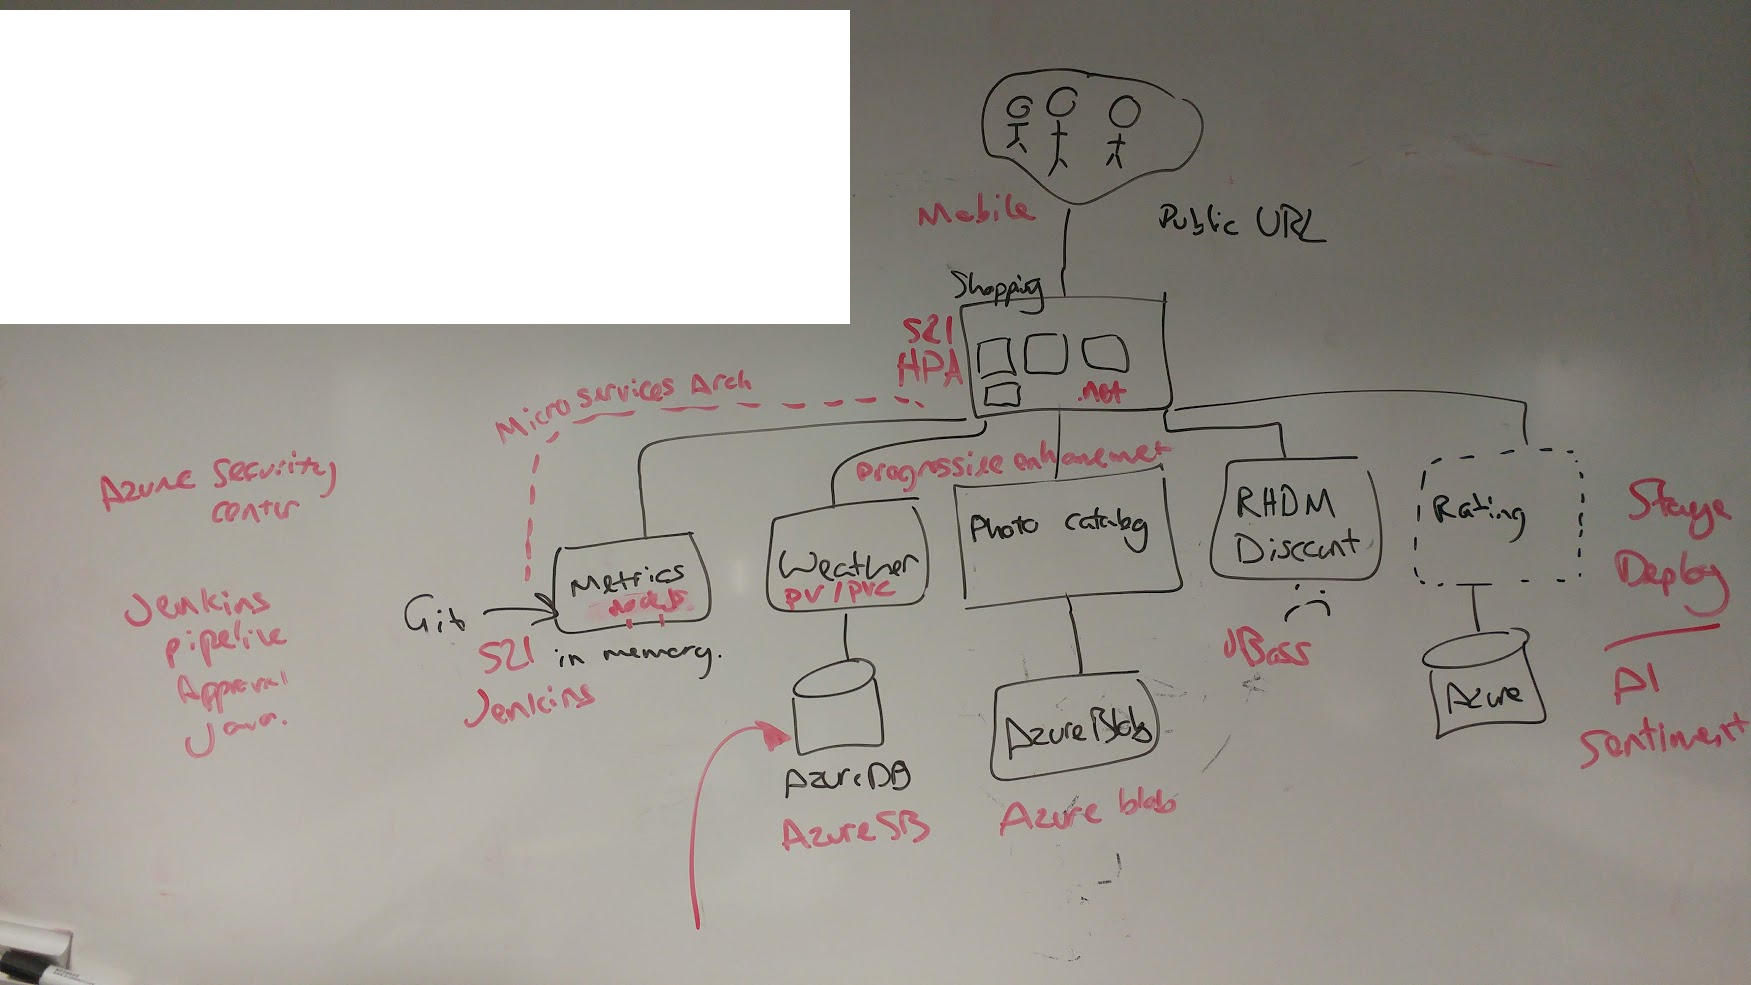 Mobile
Public URL
Shopping
S2I
HPA
.net
Microservices Arch
progressive enhanemet
Azure Security
center
Jenkins
pipeline
Approval
Java.
Git
Metrics
nodejs
S2I in memory.
Jenkins
Weather
PV/PVC
AzureDB
AzureSB
Photo catalog
Azure Blob
Azure blob
RHDM
Discount
JBoss
Rating
Azure
Stage
Deploy
AI
Sentiment